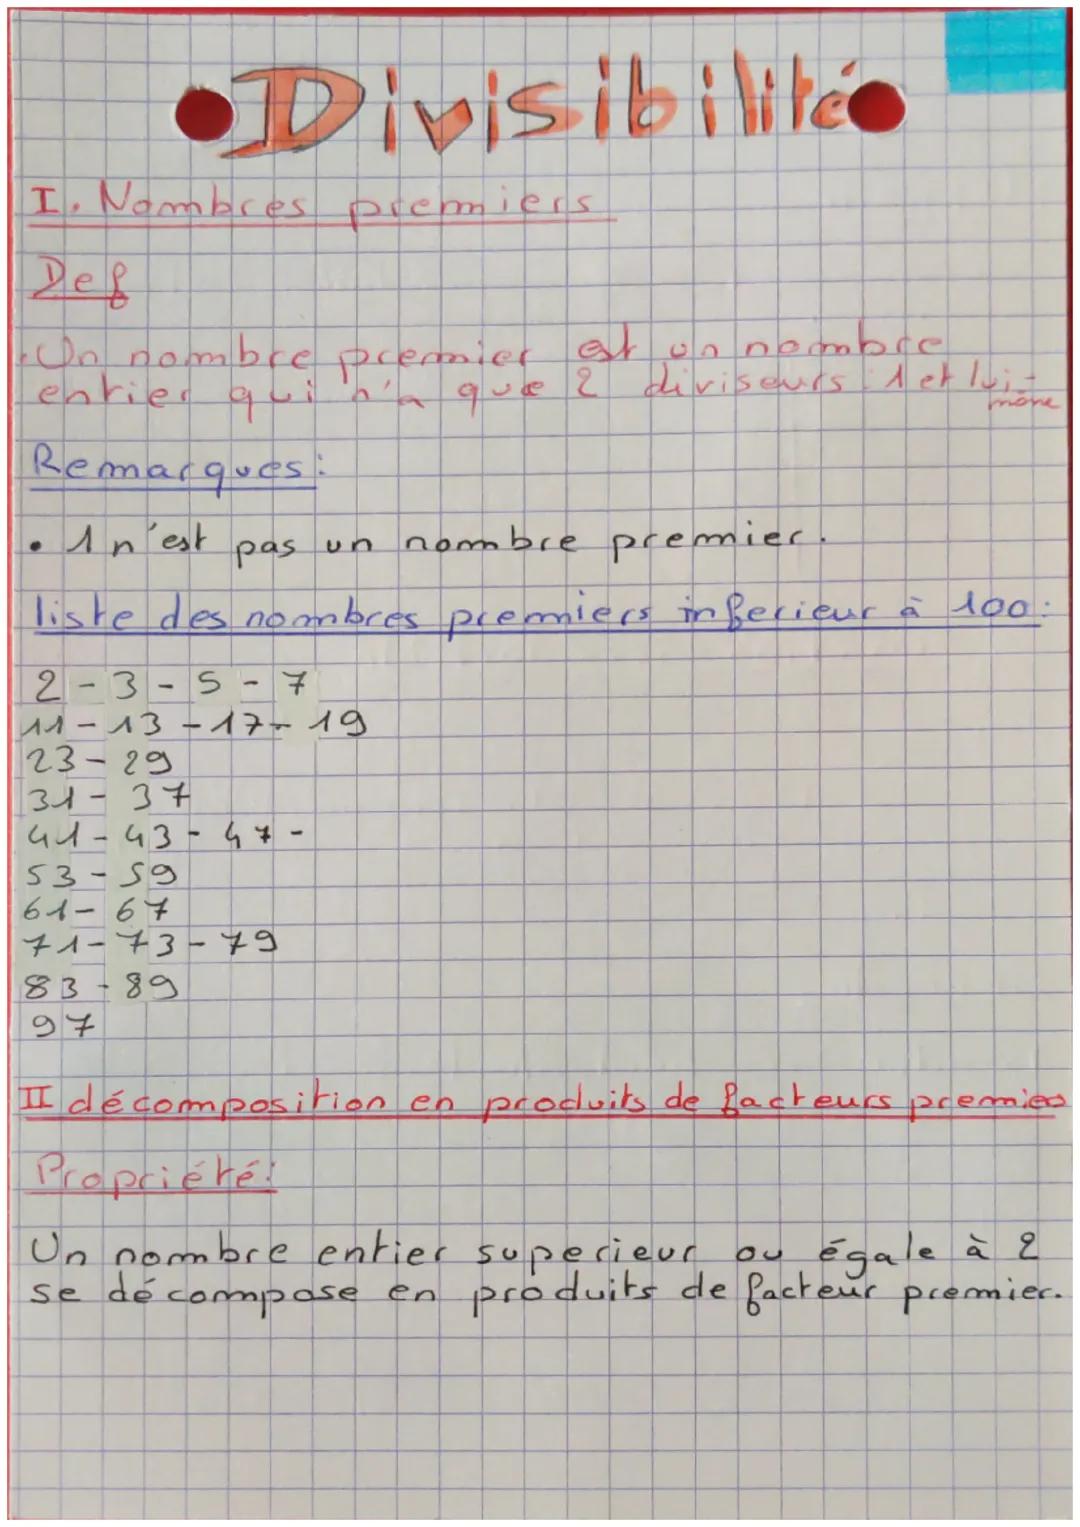 • Divisibilité •
I. Nombres premiers
Def
• Un nombre premier est un nombre
entier qui n'a que 2 diviseurs : 1 et lui-
même
Remarques :
• 1 n'est pas un nombre premier.
liste des nombres premiers inferieur à 100 :
2 - 3 - 5 - 7
11 - 13 - 17 - 19
23 - 29
31 - 37
41 - 43 - 47 -
53 - 59
61 - 67
71 - 73 - 79
83 - 89
97
II décomposition en produits de facteurs premiers
Propriété :
Un nombre entier superieur ou égale à 2
se décompose en produits de facteur premier.